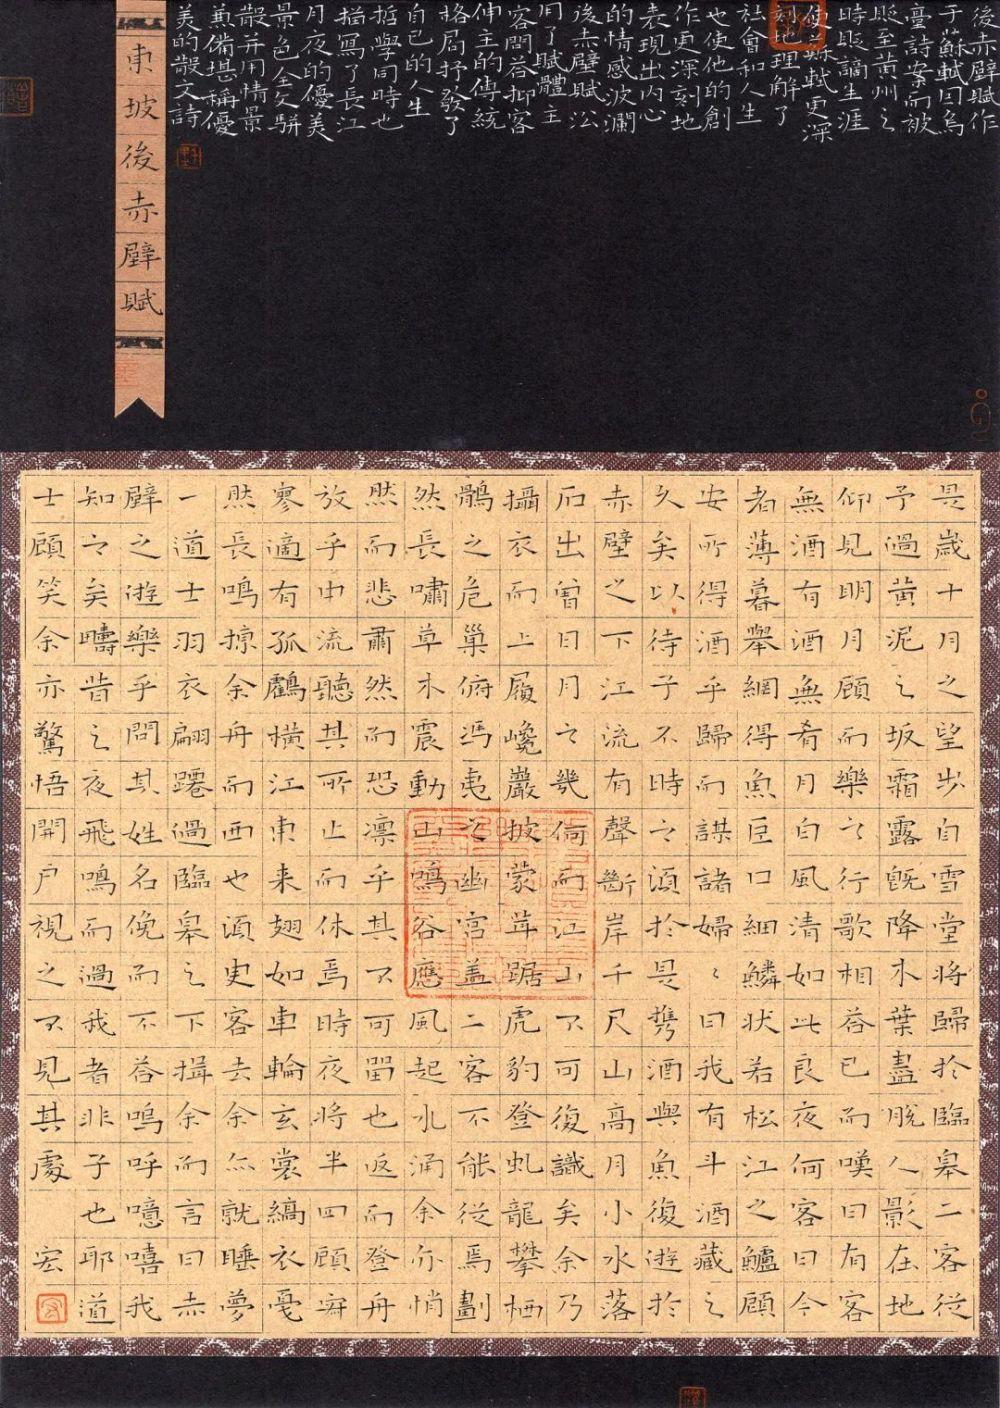 後赤壁賦作
于蘇軾因烏
臺詩案而被
貶至黃州之
時貶謫生涯
使蘇軾更深
刻地理解了
社會和人生
也使他的創
作更深刻地
表現出內心
的情感波瀾
後赤壁賦沿
用了賦體主
客問答抑客
伸主的傳統
格局抒發了
自己的人生
哲學同時也
描寫了長江
月夜的優美
景色全文駢
散并用情景
兼備堪稱優
美的散文詩
東坡後赤壁賦
是歲十月之望步自雪堂將歸於臨皋二客從
予過黃泥之坂霜露既降木葉盡脫人影在地
仰見明月顧而樂之行歌相答已而嘆曰有客
無酒有酒無肴月白風清如此良夜何客曰今
者薄暮舉網得魚巨口細鱗狀若松江之鱸顧
安所得酒乎歸而謀諸婦々曰我有斗酒藏之
久矣以待子不時之須於是攜酒與魚復遊於
赤壁之下江流有聲斷岸千尺山高月小水落
石出曾日月之幾何而江山不可復識矣余乃
攝衣而上履巉巖披蒙茸踞虎豹登虬龍攀栖
鶻之危巢俯馮夷之幽宮蓋二客不能從焉劃
然長嘯草木震動山鳴谷應風起水涌余亦悄
然而悲肅然而恐凜乎其不可留也返而登舟
放乎中流聽其所止而休焉時夜將半四顧寂
寥適有孤鶴橫江東來翅如車輪玄裳縞衣戛
然長鳴掠余舟而西也須臾客去余亦就睡夢
一道士羽衣翩躚過臨皋之下揖余而言曰赤
壁之遊樂乎問其姓名俛而不答嗚呼噫嘻我
知之矣疇昔之夜飛鳴而過我者非子也耶道
士顧笑余亦驚悟開戶視之不見其處 宏